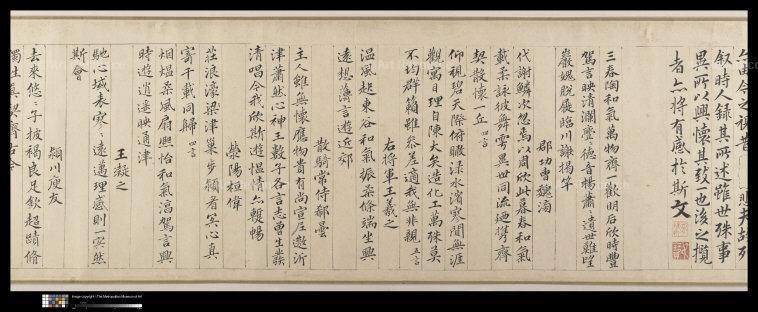 叙時人録其所述雖世殊事
異所以興懷其致一也後之攬
者亦將有感於斯文
三春陶和氣萬物齊一歡明后欣時豐
駕言映清瀾亹亹德音暢蕭蕭遺世難望
巖愧脱屣臨川謝揭竿
郡功曹魏滂
代謝鱗次忽焉以周欣此暮春和氣
載柔詠彼舞雩異世同流迺携齊
契散懷一丘 四言
仰視碧天際俯瞰渌水濱寥閴無涯
觀寓目理自陳大矣造化工萬殊莫
不均群籟雖參差適我無非親 五言
右將軍王羲之
溫風起東谷和氣振柔條端坐興
遠想薄言遊近郊
散騎常侍郗曇
主人雖無懷應物貴有尚宣尼遨沂
津蕭然心神王數子各言志曾生發
清唱今我欣斯遊慍情亦蹔暢
滎陽桓偉
莊浪濠梁津巢步潁湄冥心真
寄千載同歸 四言
烟熅柔風扇熙怡和氣淳駕言興
時遊逍遥映通津
王凝之
馳心域表寥寥遠邁理感則一冥然
斯會
潁川庾友
去來悠悠子披褐良足欽超蹟脩
獨往真契齊古今
Image copyright © The Metropolitan Museum of Art